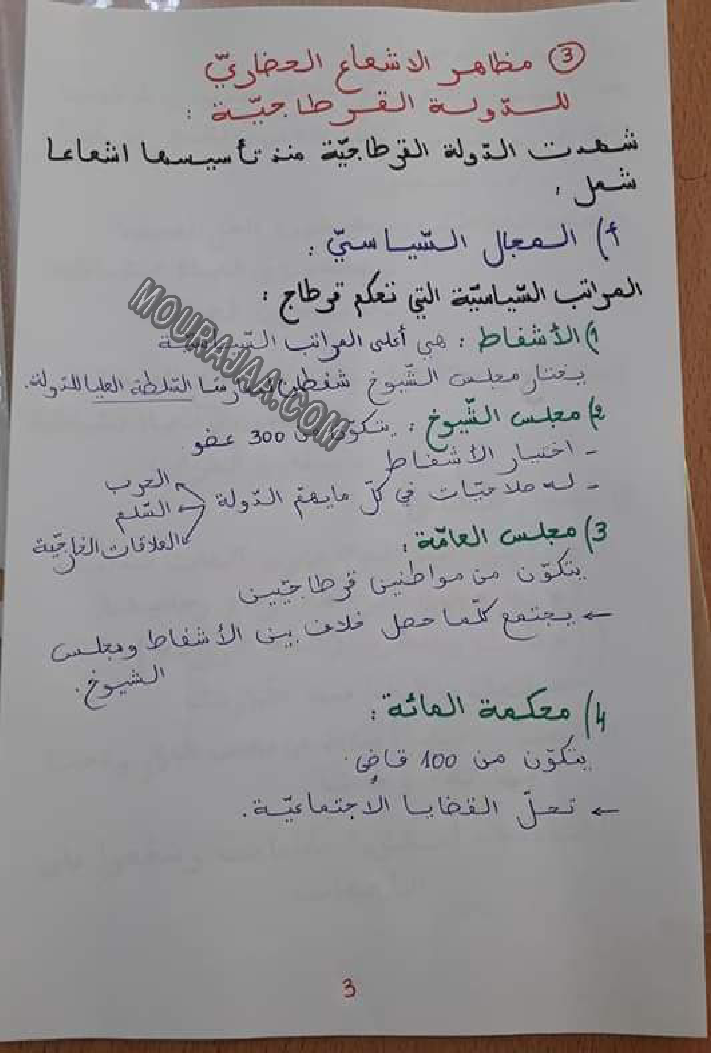 ③ مظاهر الاشعاع الحضاريّ
للدّولة القرطاجيّة :
شهدت الدّولة القرطاجيّة منذ تأسيسها اشعاعا
شمل :
أ) المجال السّياسيّ :
المراتب السّياسيّة التي تحكم قرطاج :
1) الأشفاط : هي أعلى المراتب السّياسيّة
يختار مجلس الشّيوخ شفطين السّلطة العليا للدّولة.
2) مجلس الشّيوخ : يتكوّن من 300 عضو
- اختيار الأشفاط
- له صلاحيّات في كلّ ما يهمّ الدّولة
الحرب
السّلم
العلاقات الخارجيّة
3) مجلس العامّة :
يتكوّن من مواطنين قرطاجيّين
← يجتمع كلّما حصل خلاف بين الأشفاط ومجلس
الشيوخ.
4) محكمة المائة :
يتكوّن من 100 قاضٍ
← تحلّ القضايا الاجتماعيّة.
3
MOURAJAA.COM